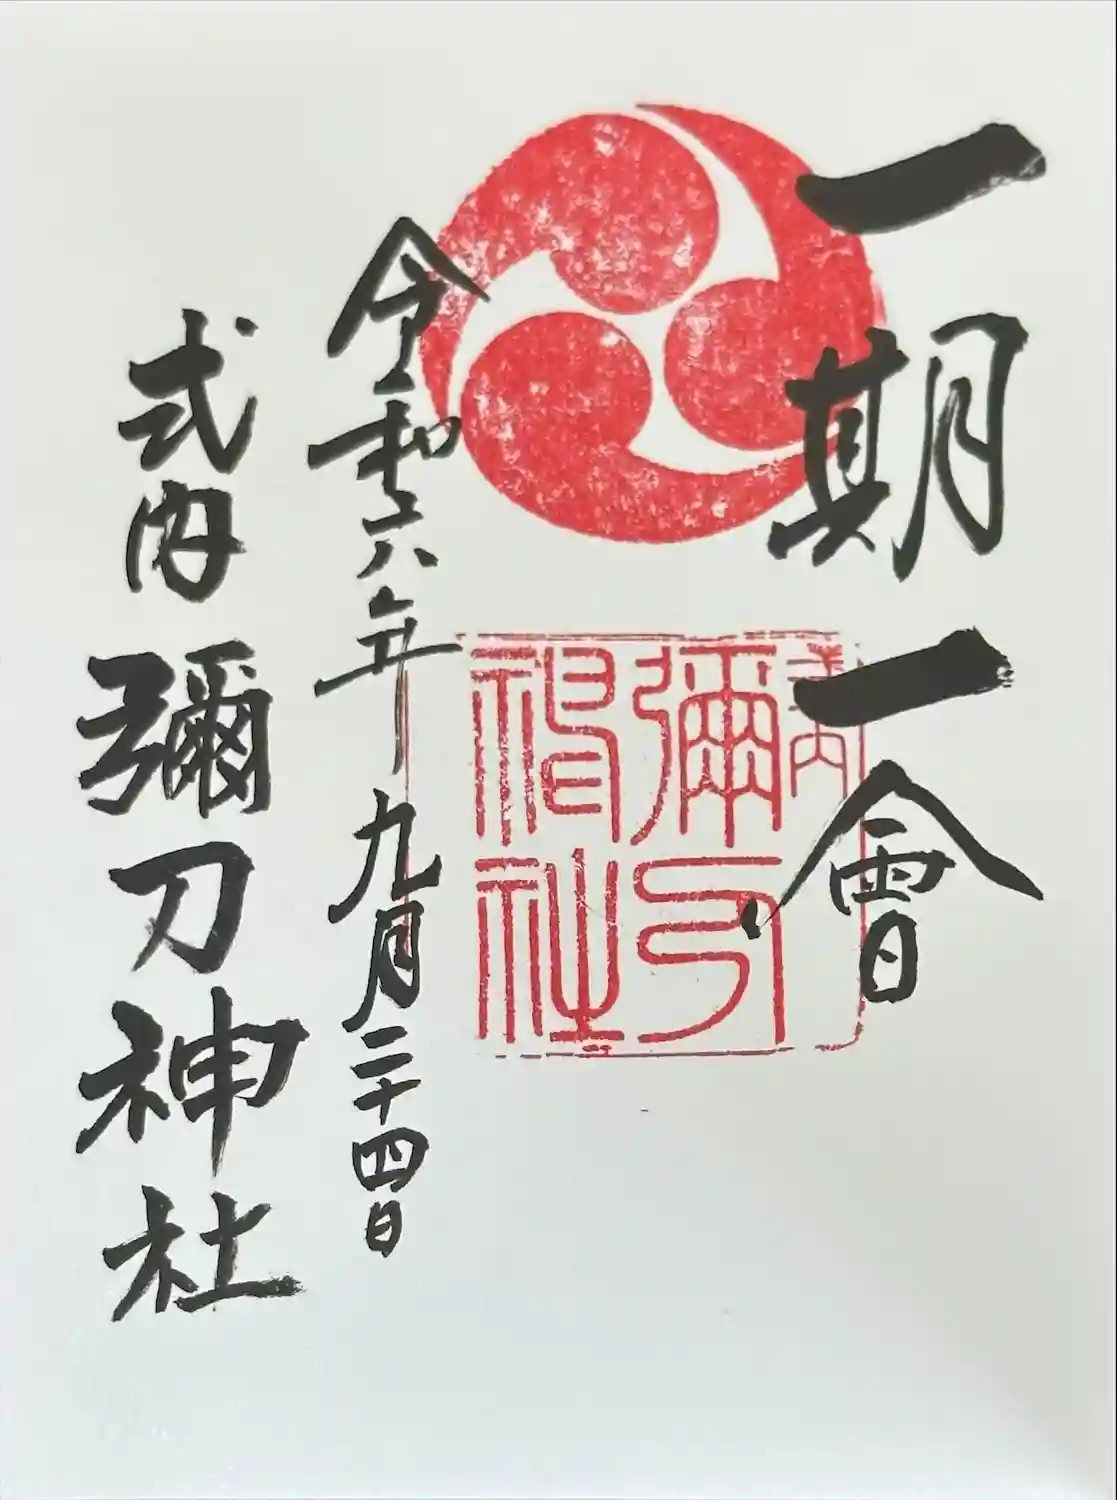 一期一會
式内
彌刀
神社
令和六年九月二十四日
式内彌刀神社